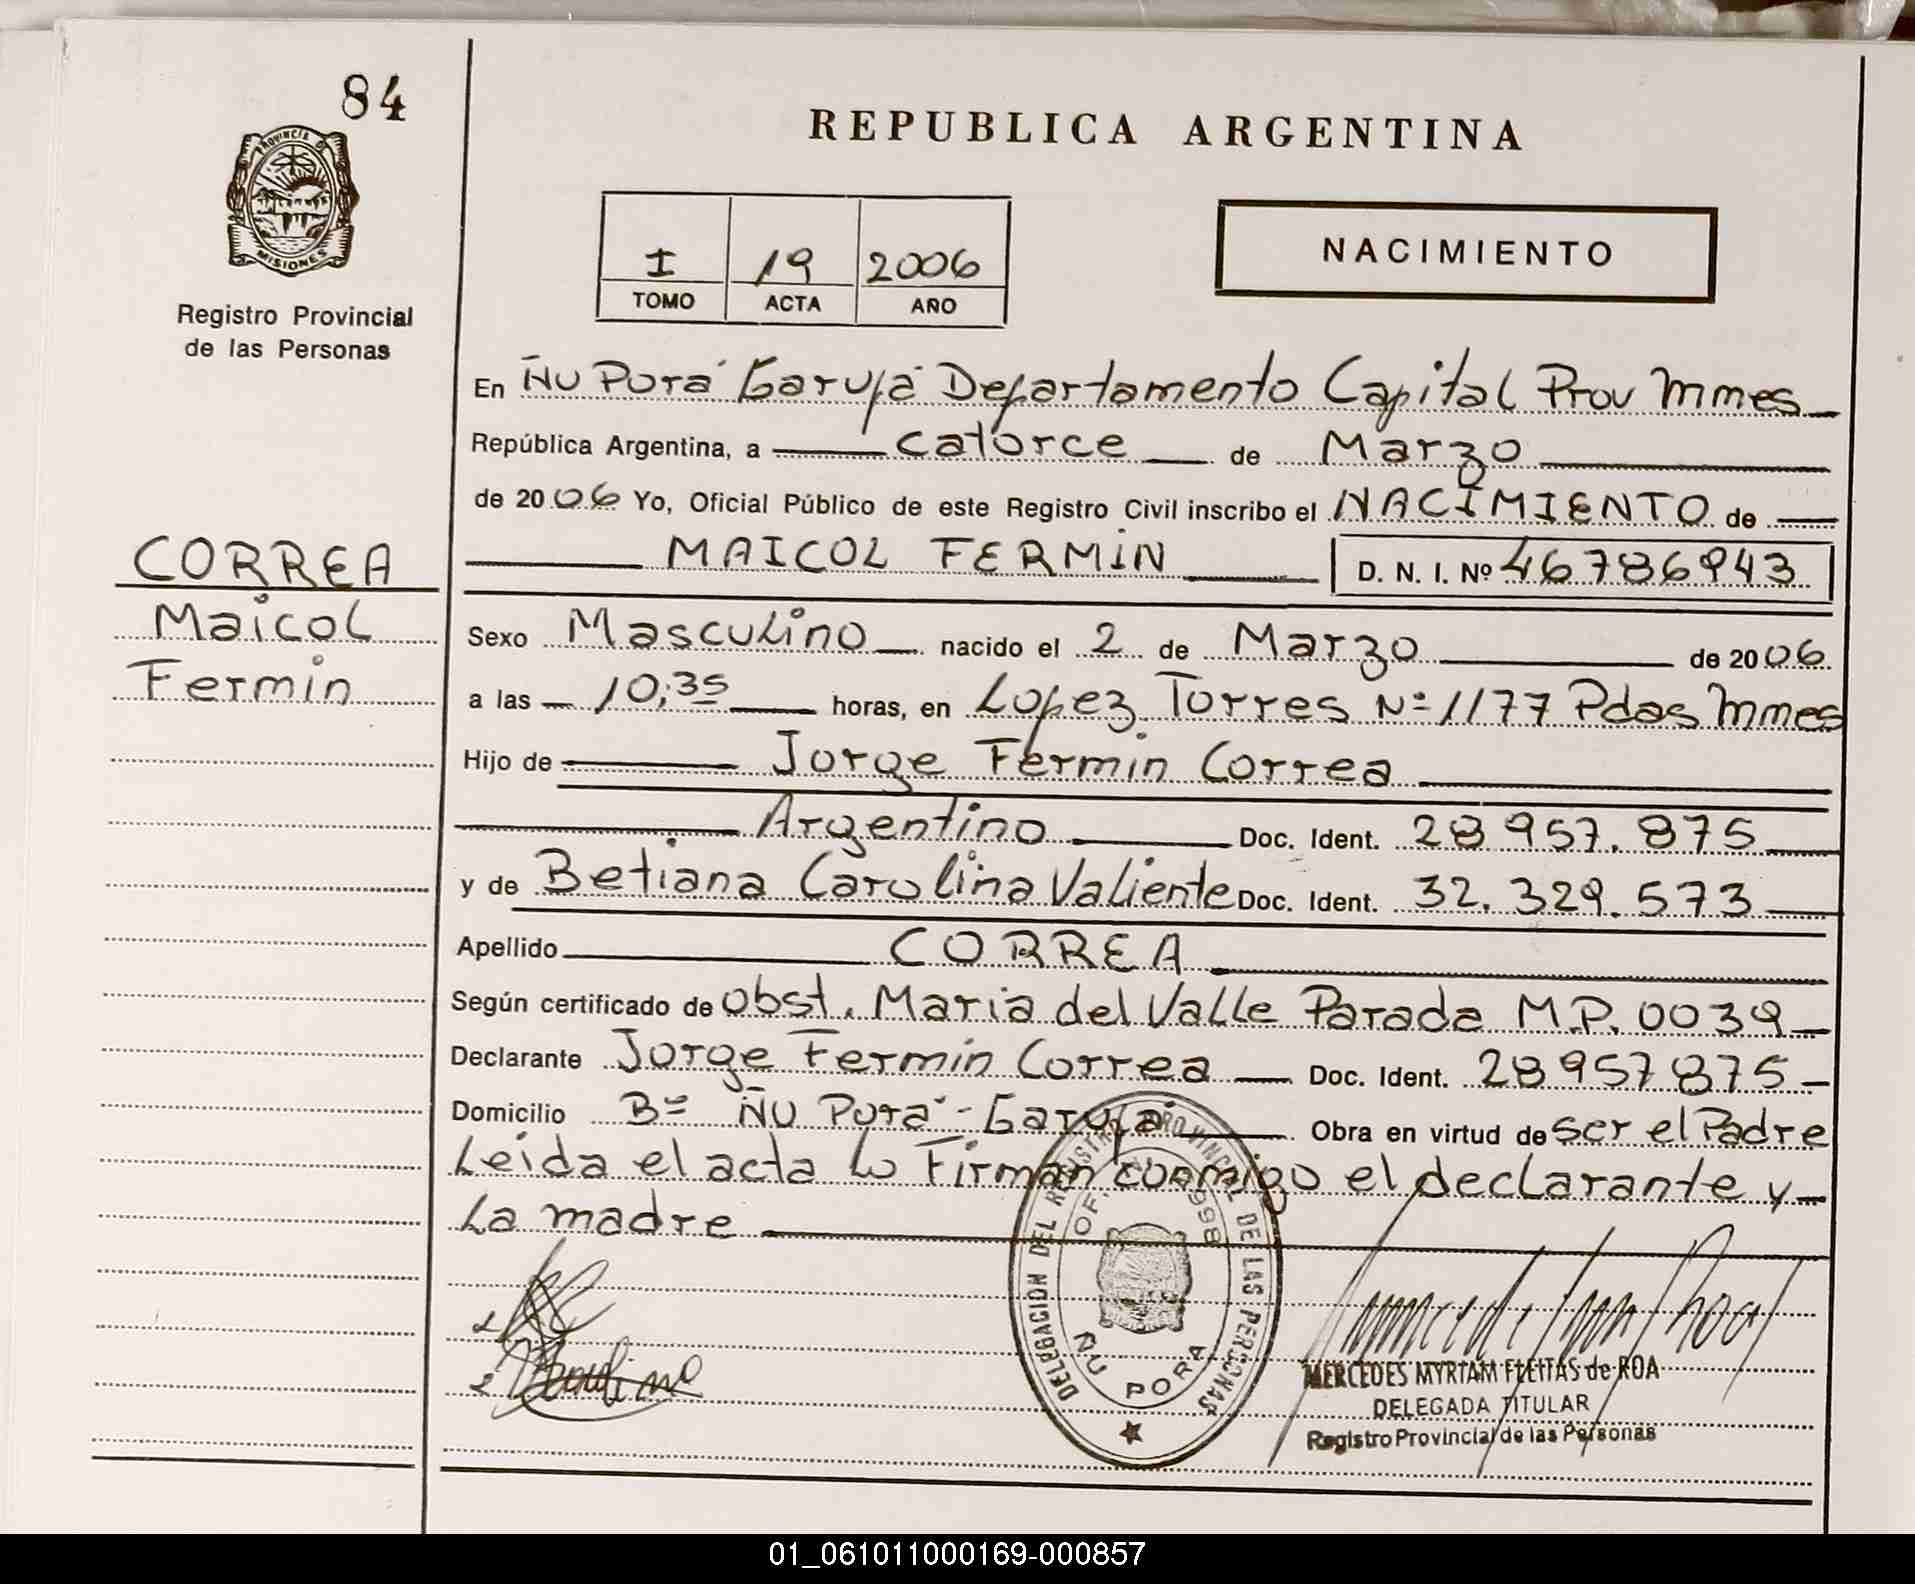 84
PROVINCIA DE
MISIONES
Registro Provincial
de las Personas
CORREA
Maicol
Fermin
REPUBLICA ARGENTINA
I 19 2006
TOMO ACTA AÑO
NACIMIENTO
En Ñu Porá Garupá Departamento Capital Prov Mnes
República Argentina, a catorce de Marzo
de 2006 Yo, Oficial Público de este Registro Civil inscribo el NACIMIENTO de
MAICOL FERMIN D. N. I. Nº 46786943
Sexo Masculino nacido el 2 de Marzo de 2006.
a las 10:35 horas, en Lopez Torres Nº 1177 Pdas Mnes
Hijo de Jorge Fermin Correa
Argentino Doc. Ident. 28957.875
y de Betiana Carolina Valiente Doc. Ident. 32.329.573
Apellido CORREA
Según certificado de obst. Maria del Valle Parada M.P. 0039
Declarante Jorge Fermin Correa Doc. Ident. 28957875
Domicilio Bº Ñu Porá - Garupá Obra en virtud de ser el Padre
Leida el acta lo Firman conmigo el declarante y
La madre
DELEGACION DEL REGISTRO PROVINCIAL DE LAS PERSONAS
ÑU PORA
MERCEDES MYRIAM FLEITAS de ROA
DELEGADA TITULAR
Registro Provincial de las Personas
01_061011000169-000857